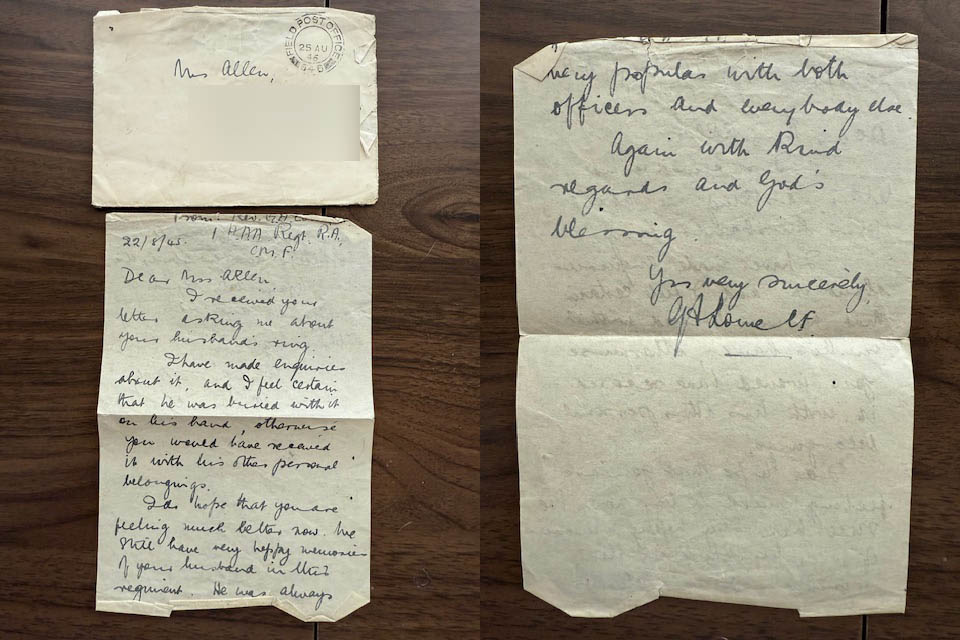 FIELD POST OFFICE
25 AU
45
Mrs Allen,
From: Rev. G.H.
1 HAA Regt. R.A.,
C.M.F.
22/8/45.
Dear Mrs Allen
I received your
letter asking me about
your husbands ring.
I have made enquiries
about it, and I feel certain
that he was buried with it
on his hand, otherwise
you would have received
it with his other personal
belongings.
I do hope that you are
feeling much better now. We
still have very happy memories
of your husband in this
regiment. He was always
very popular with both
officers and everybody else.
Again with Kind
regards and God's
blessing.
Yrs very sincerely,